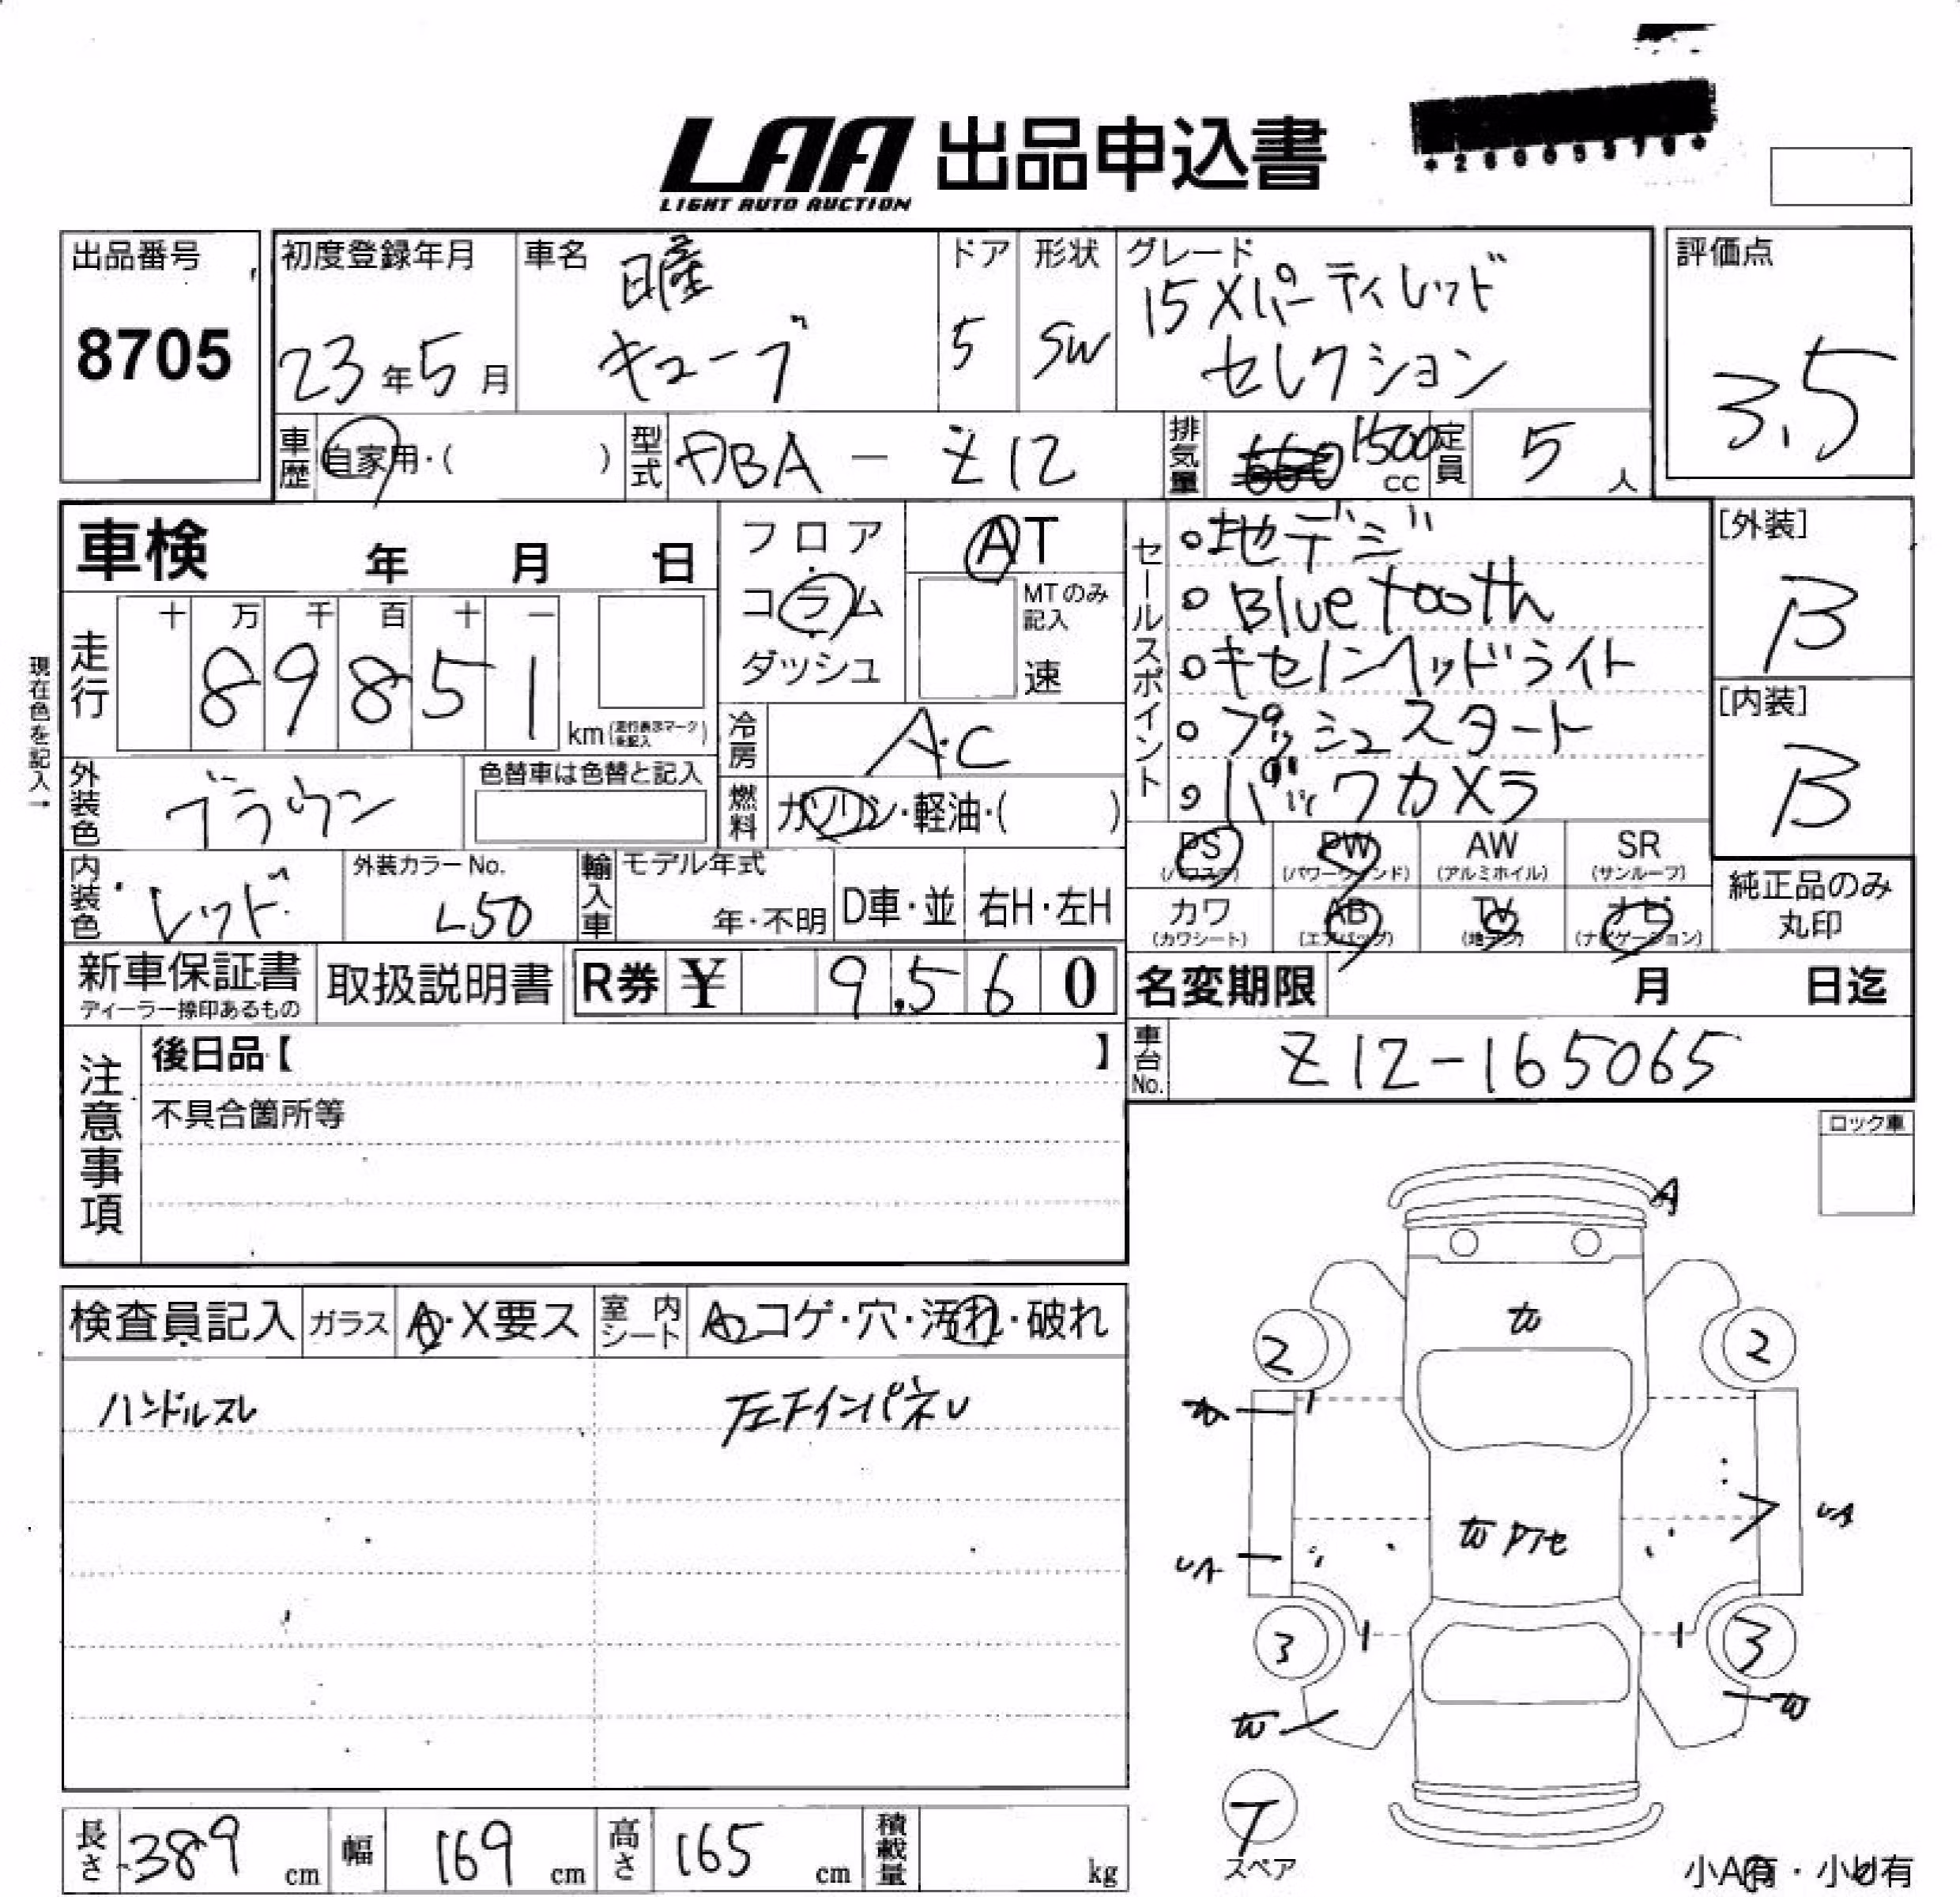 LAA 出品申込書
LIGHT AUTO AUCTION
出品番号
8705
初度登録年月
23年5月
車名
日産
キューブ
ドア
5
形状
SW
グレード
15Xパーティレッド
セレクション
評価点
3.5
車歴
自家用・( )
型式
DBA - Z12
排気量
660 1500 cc
定員
5人
車検 年 月 日
現在色を記入→
走行
十 万 千 百 十 一
8 9 8 5 1
km(走行表示マークを記入)
外装色
ブラウン
色替車は色替と記入
内装色
レッド
外装カラーNo.
L50
輸入車
モデル年式
年・不明
D車・並
右H・左H
フロア
コラム
ダッシュ
AT
MTのみ記入
速
冷房
A.C
燃料
ガソリン・軽油・( )
セールスポイント
。地デジ
。Bluetooth
。キセノンヘッドライト
。プッシュスタート
。バックカメラ
[外装]
B
[内装]
B
PS
(パワステ)
PW
(パワーウィンド)
AW
(アルミホイル)
SR
(サンルーフ)
カワ
(カワシート)
AB
(エアバッグ)
TV
(地デジ)
ナビ
(ナビゲーション)
純正品のみ
丸印
新車保証書
ディーラー捺印あるもの
取扱説明書
R券 ¥ 9,560
名変期限 月 日迄
車台No.
Z12-165065
注意事項
後日品【 】
不具合箇所等
ロック車
検査員記入
ガラス
A・X要ス
室内シート
A コゲ・穴・汚れ・破れ
ハンドルスレ
左Fインパネ
A
W
2
2
UA
UA
W
3
3
W
W
T
スペア
長さ 389 cm
幅 169 cm
高さ 165 cm
積載量 kg
小A有・小U有